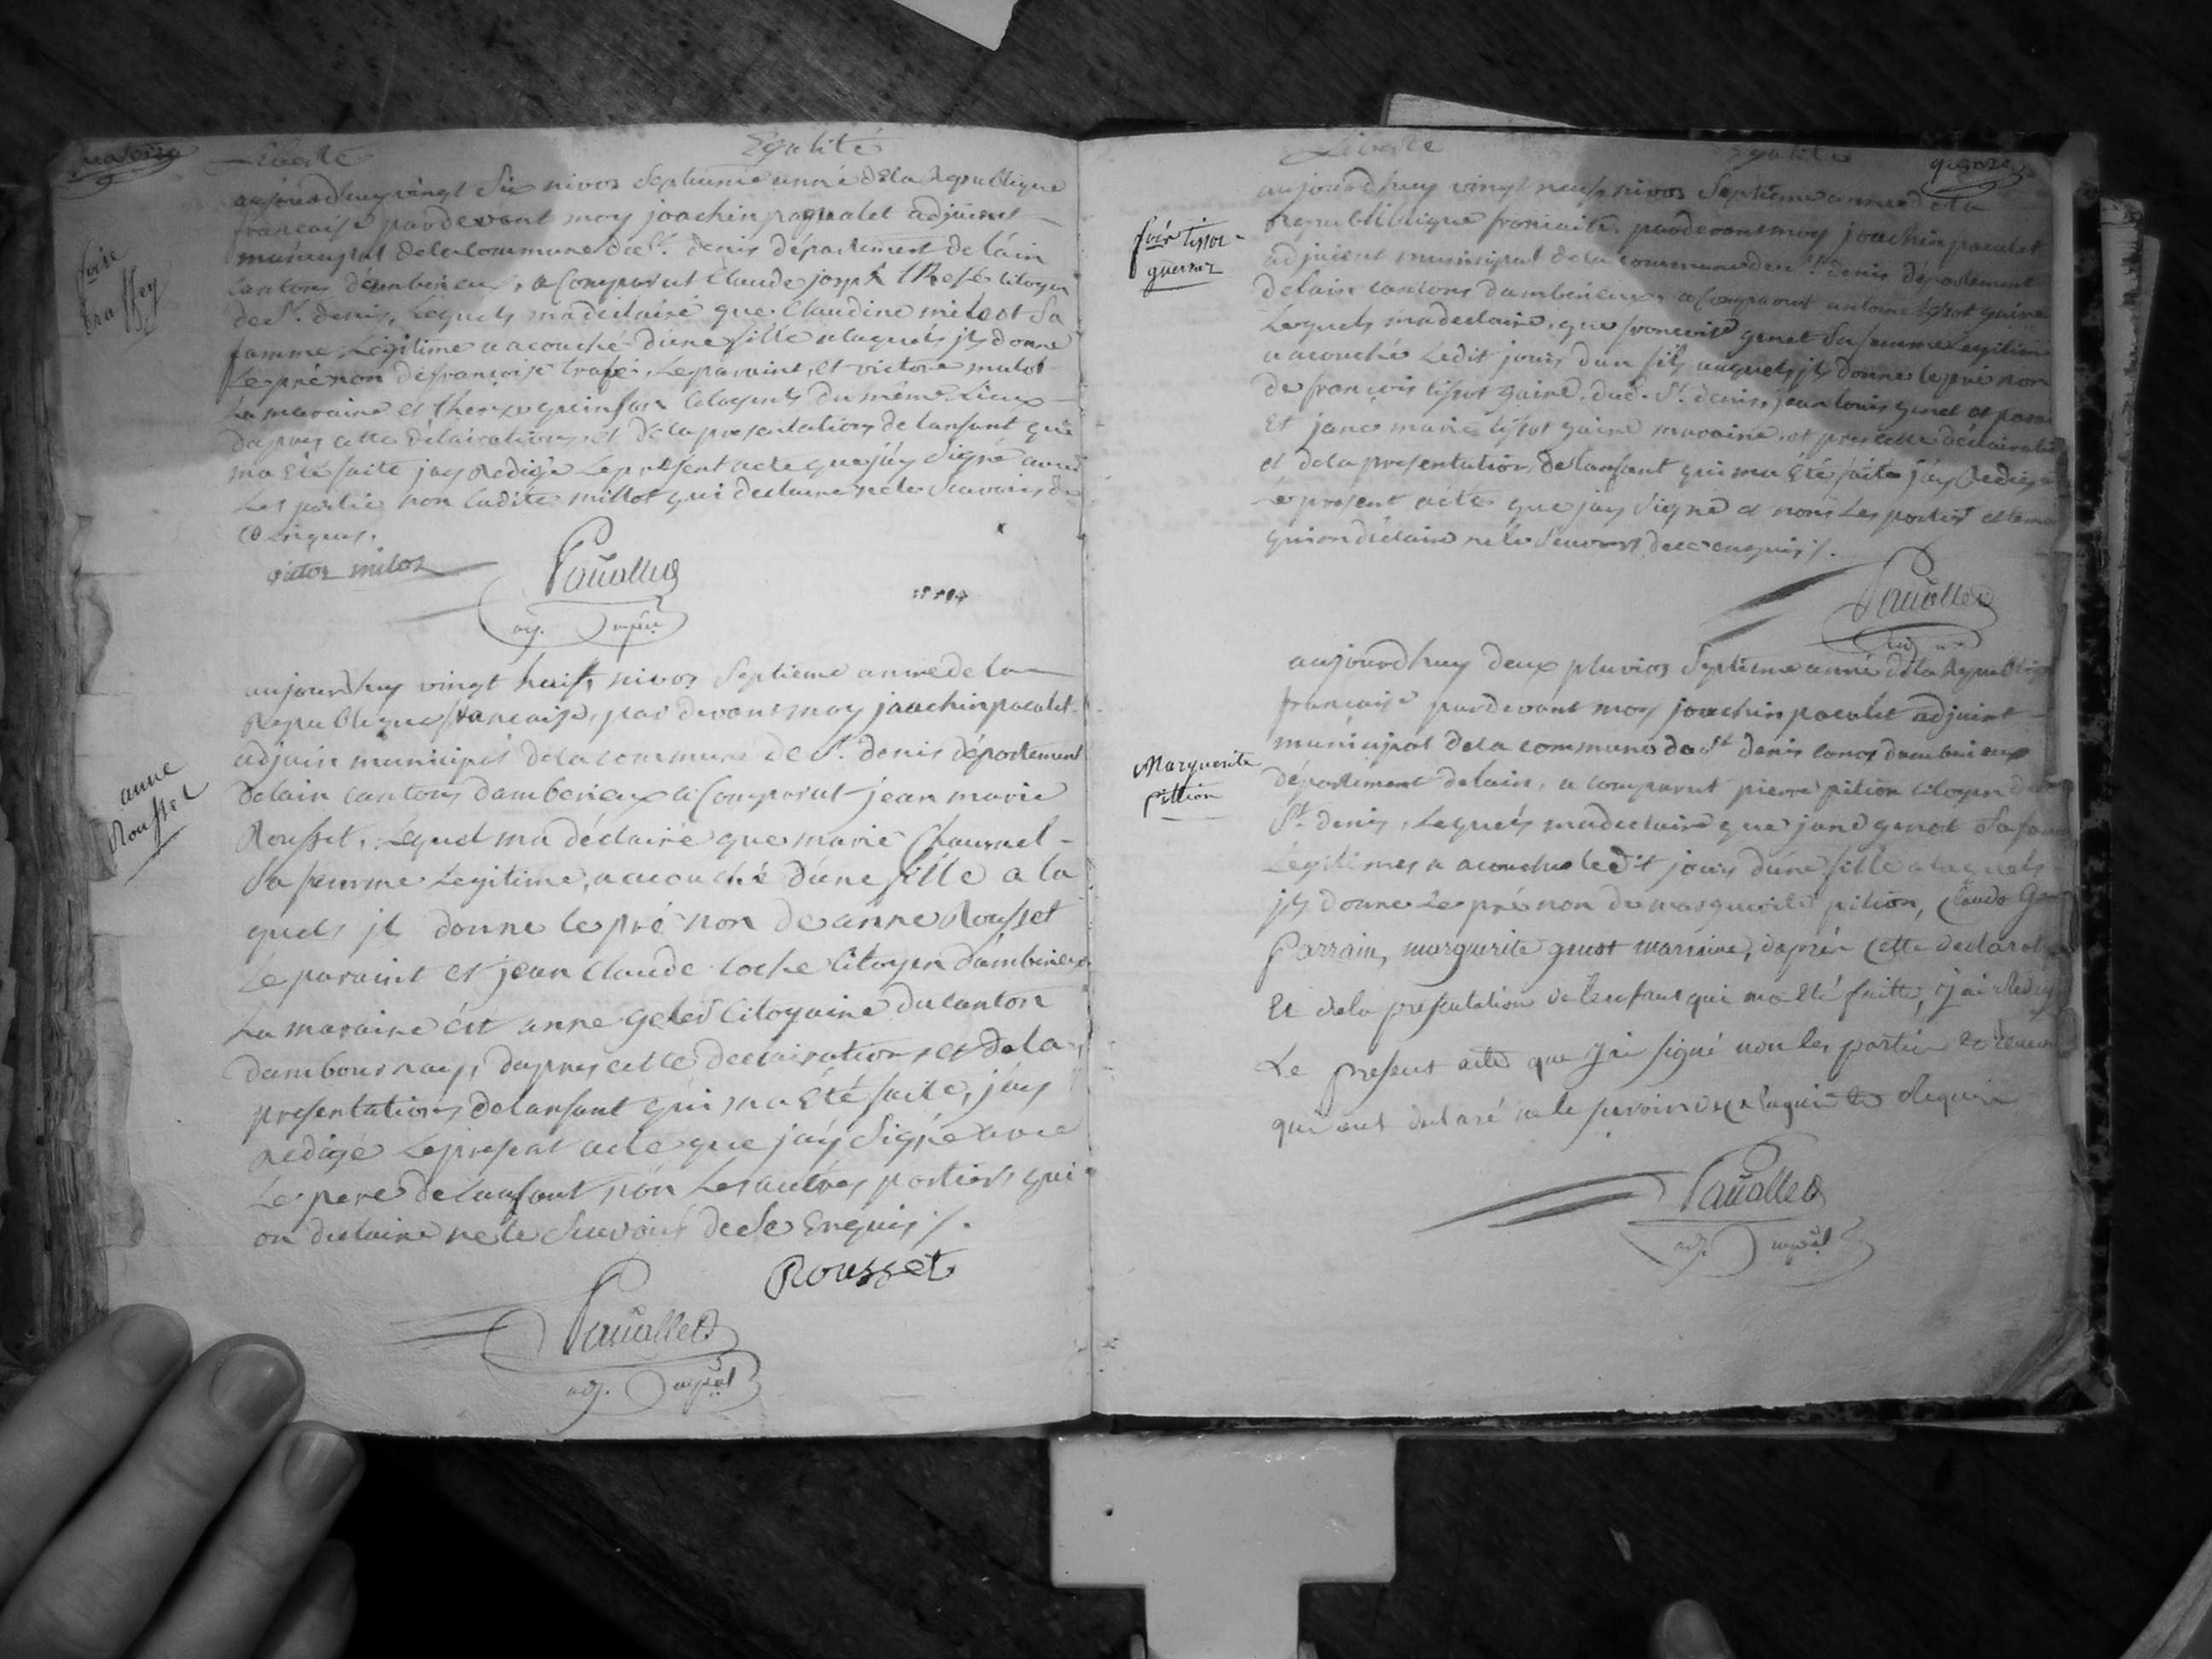 quatorze
Liberté Egalité
aujourdhuy vingt six nivos septieme anné de la Republique
francaise pardevant moy joachin paqualet adjuient
municipal de la commune de St. denis département de lain
cantons d'amberieux, a comparut Claude joseph
de St. denis, lequels ma declairé que Claudine milot sa
famme legitime a acouché d'une fille a laquels jls donne
le prénon de françoise trafei, le paraint et victore mulot
la maraine et therese guinson citoyents du même lieux
dapres cette déclairations et de la presentations de lanfant qui
ma été faite jay redigé le présent acte que jay signé avec
les partie non ladite millot qui declaire ne le savoirs de
ce enquis.
victor miloz
Pauallet
adj. mpal
foise
traffey
aujourdhuy vingt huit nivos septieme anné de la
Republique francaise, par devant moy joachin pacalet
adjuin municipal de la commune de St. denis département
de lain cantons damberieux a comparut jean marie
Rousset, lequel ma déclairé que marie Chaurnel
sa femme legitime, a acouché d'une fille a la
quels jl donne le pré non de anne Rousset
le paraint et jean Claude coche citoyen d'amberieux
la maraine est anne citoyaine du canton
dambournay, dapres cette declairations et de la
presentations de lanfant qui ma été faite, jay
redigé le present acte que jay signé avec
le pere de lanfant non les autres partiers qui
on declaire ne le savoirs de se enquis ./.
Rousset
Pauallet
adj. mpal
anne
Rousset
quinze
Liberté Egalité
aujourdhuy vingt neuf nivos septieme anné de la
Republiblique francaise, pardevant moy joachin pacalet
adjuient municipal de la commune de St. denis département
de lain cantons damberieux, a comparut antoine tissot guirre
lequels ma declairé, que francoise genet sa femme legitime
a acouché ledit jours d'un fils auquels jls donne le pré non
de françois tissot guirre, dud. St. denis, jean louis genet et para
et jane marie tissot guire maraine, et pres cette déclairati
et de la presentation de lanfant qui ma été faite jay redigé
le present acte que jay signé et non les parties et temo
qui on declaire ne le savoirs de ce enquis ./.
Pauallet
fois tissot
guerrer
aujourdhuy deux pluvios septieme anné de la Republique
francaise pardevant moy joachin pacalet adjuint
municipal de la commune de St denis canos damberieux
département de lain, a comparut pierre pition citoyen de
St. denis, lequels ma declairé que jane genot sa fam
legitimes a acouché ledit jours d'une fille a laquels
jls donne le pré non de marguerite pition, claude Gen
Parrain, marguerite genot marraine, d'aprés cette declaratio
Et de la presentation de l'enfant qui m'a été faitte, j'ai redigé
Le present acte que j'ai signé non les parties et temoi
qui ont declaré ne le savoir de ce enquis
Pauallet
adj. mpal
Marguerite
pittion